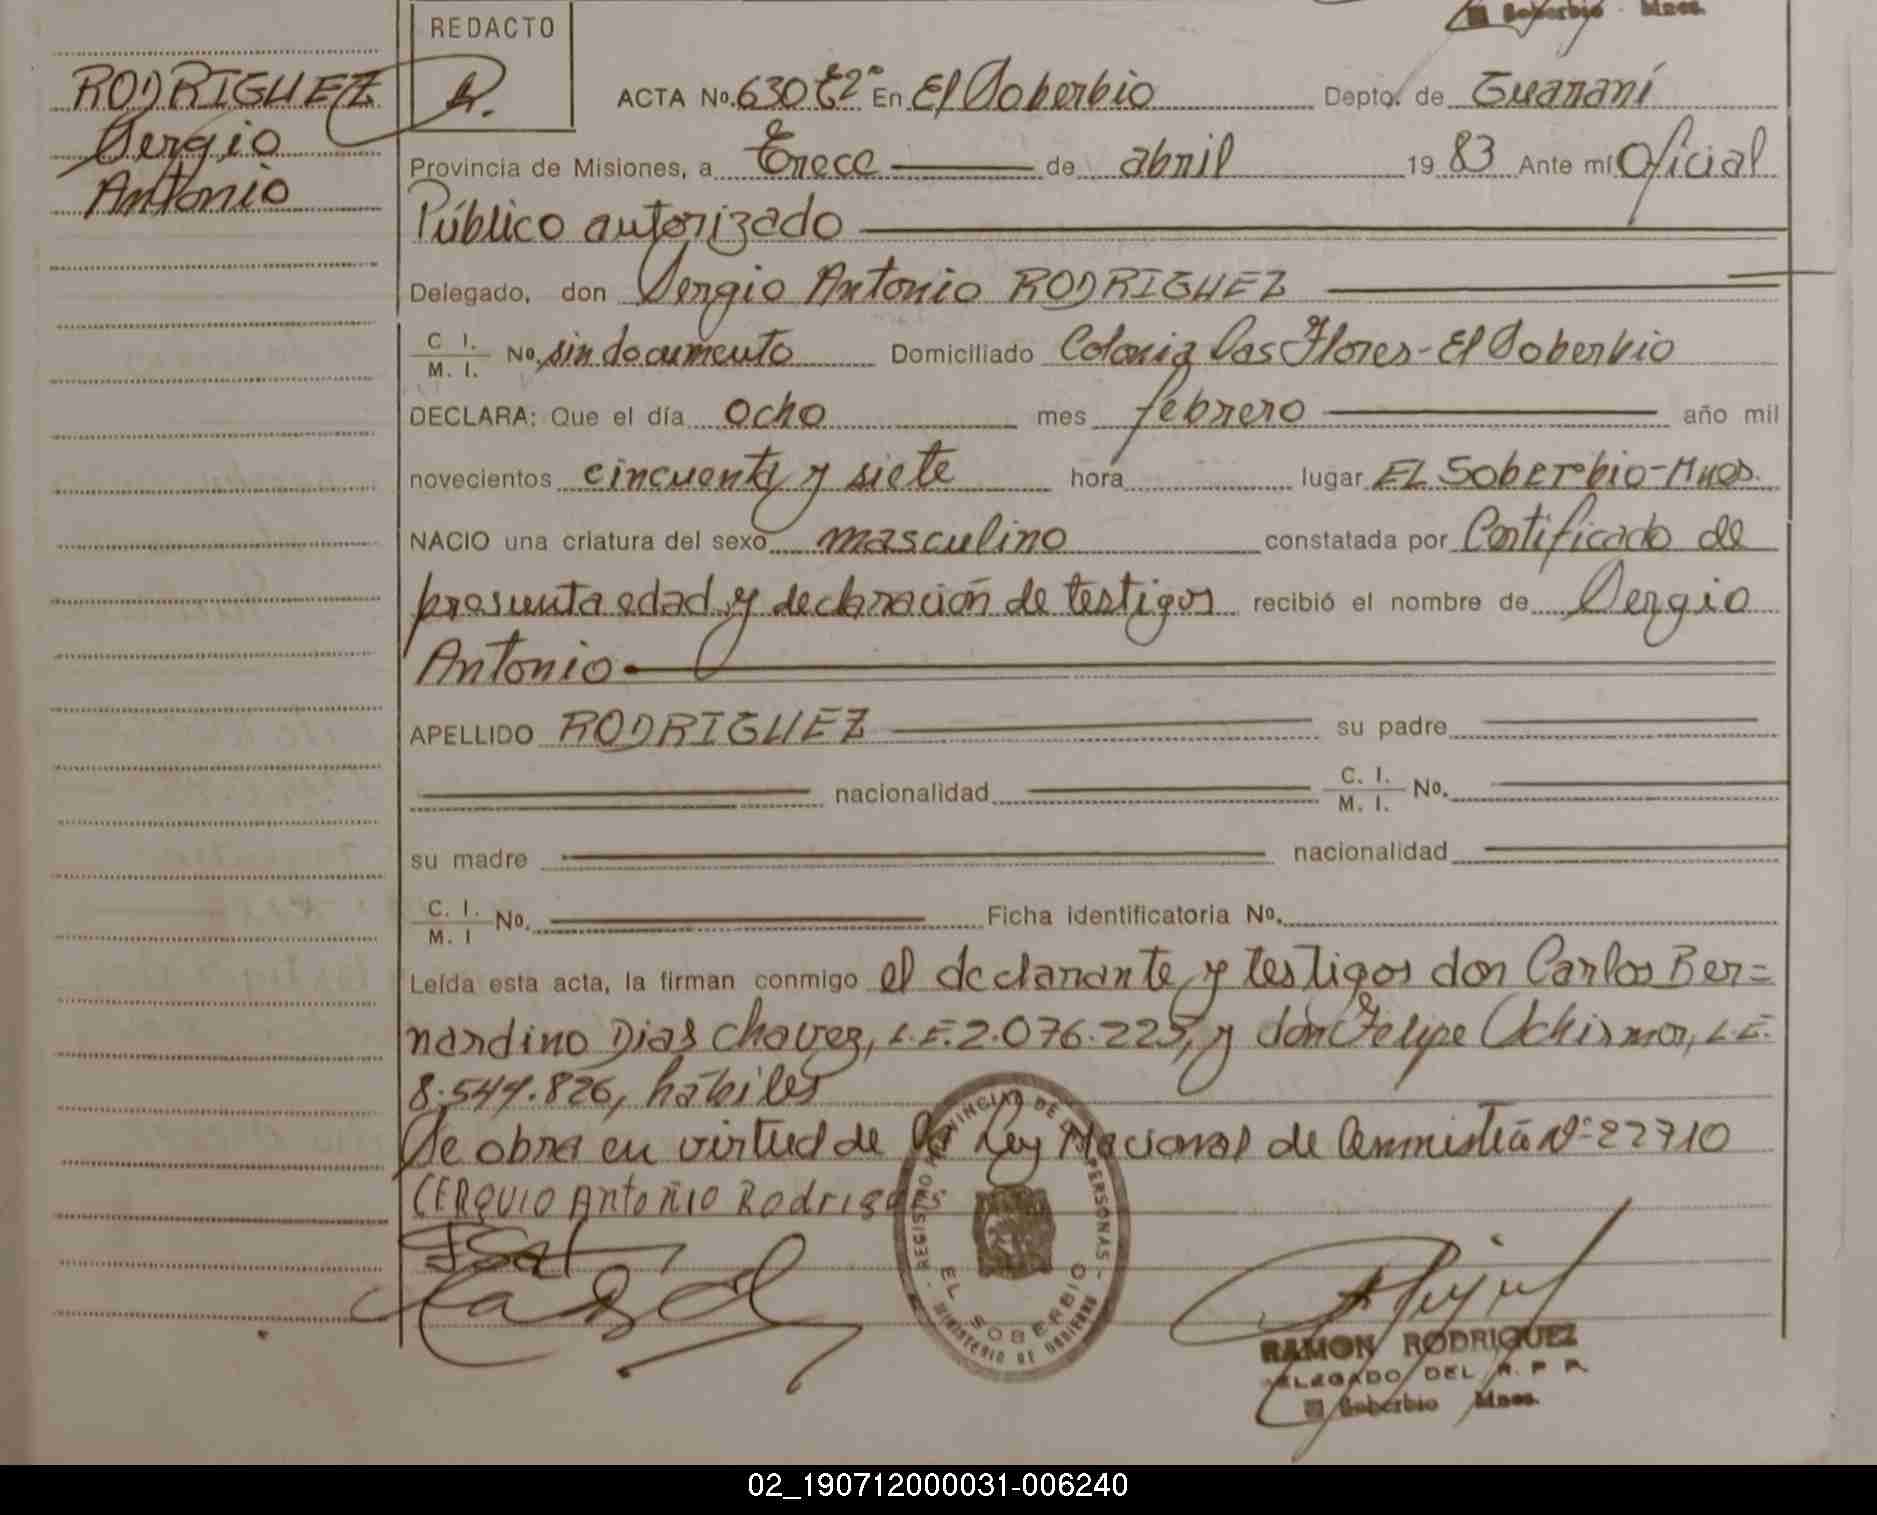 El Soberbio - Mnes.
REDACTO
RODRIGUEZ
Sergio
Antonio
ACTA No. 630 tº2º En El Soberbio Depto. de Guaraní
Provincia de Misiones, a Trece de abril 19 83 Ante mí Oficial
Público autorizado
Delegado, don Sergio Antonio RODRIGUEZ
C. I. M. I. No. sin documento Domiciliado Colonia Las Flores - El Soberbio
DECLARA: Que el día ocho mes febrero año mil
novecientos cincuenta y siete hora lugar EL Soberbio - Mnes.
NACIO una criatura del sexo masculino constatada por Certificado de
presunta edad y declaración de testigos recibió el nombre de Sergio
Antonio
APELLIDO RODRIGUEZ su padre
nacionalidad C. I. M. I. No.
su madre nacionalidad
C. I. M. I No. Ficha identificatoria No.
Leída esta acta, la firman conmigo el declarante y testigos don Carlos Ber=
nardino Dias Chavez, L.E. 2.076.225, y don Felipe L.E.
8.544.826, hábiles
Se obra en virtud de la Ley Nacional de Amnistía Nº 22710
CERQUIO Antoñio Rodrigues
REGISTRO PROVINCIAL DE LAS PERSONAS
EL SOBERBIO
MINISTERIO DE GOBIERNO
RAMON RODRIGUEZ
DELEGADO DEL R. P. P.
El Soberbio Mnes.
02_190712000031-006240